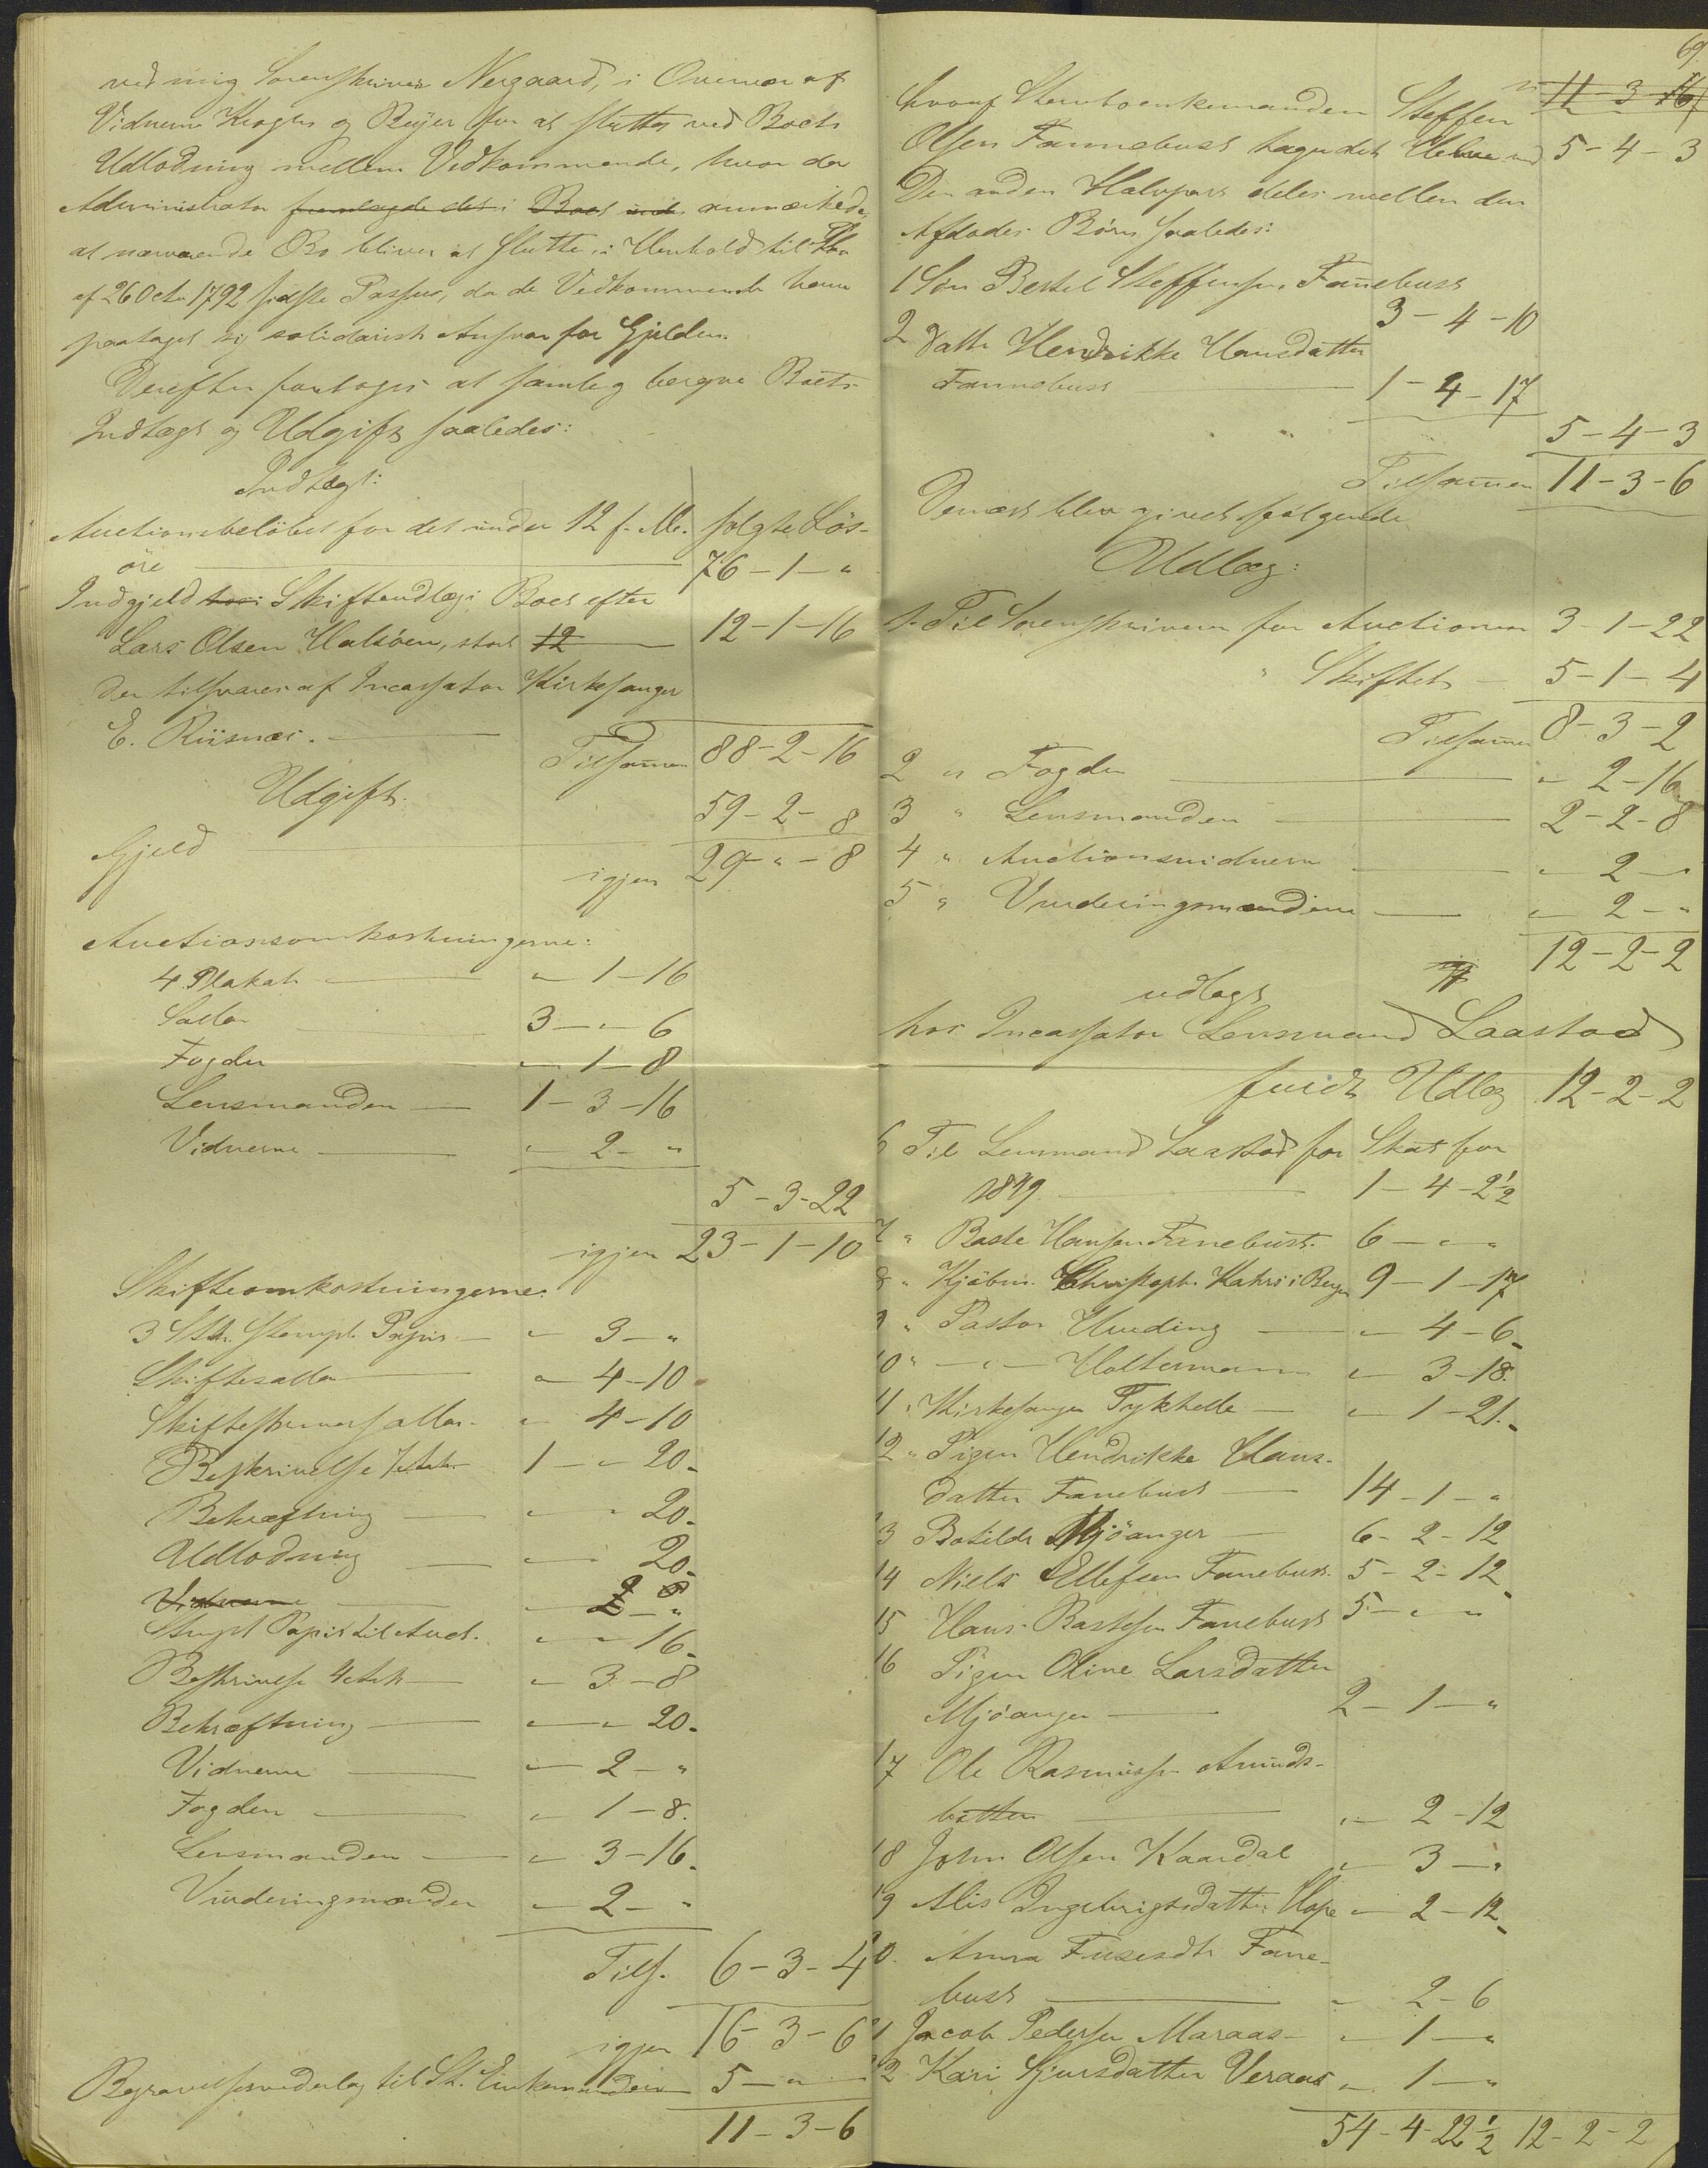 ved mig Sorenskriver Nergaard, i Overvær af
Vidnerne Krogh og Beyer for at slutte ved Boets
Udlodning mellem Vedkommende, hvor da
Administrator fremlagde det i Boet anmærkede,
at nærværende Bo bliver at slutte i Henhold til Fr.
af 26 Octr 1792 sidste Passus, da de Vedkommende have
paataget sig solidarisk Ansvar for Gjelden.
Derefter foretoges at samle og beregne Boets
Indtægt og Udgift saaledes:
Indtægt:
Auctionsbeløbet for det under 12 f. M. solgte Løs-
øre 76 - 1 - "
Indgjeld hos Skifteudlæg i Boet efter
Lars Olsen Halsöen, stort 12 12 - 1 - 16
der tilsvares af Incassator Kirkesanger
E. Riisnæs.
Tilsamen 88 - 2 - 16
Udgift.
Gjeld 59 - 2 - 8
igjen 29 - " - 8
Auctionsomkostningerne:
4 Plakat " 1 - 16
Salar 3 - " - 6
Fogden " 1 - 8
Lensmanden 1 - 3 - 16
Vidnerne " 2 - "
5 - 3 - 22
igjen 23 - 1 - 10
Skifteomkostningerne:
3 Stk. Stempl. Papir " 3 - "
Skiftesalar " 4 - 10
Skifteskriversalar " 4 - 10
Beskrivelse 1 - " 20
Bekræftning " " 20
Udlodning " " 20
Vidnerne " 2 - "
Stempl. Papir til Auct. " " 16
Beskrivelse 4 Ark " 3 - 8
Bekræftning " " 20
Vidnerne " 2 - "
Fogden " 1 - 8
Lensmanden " 3 - 16
Vurderingsmænder " 2 - "
Tils. 6 - 3 - 4
igjen 16 - 3 - 6
Begravelsesvederlag til St. Enkemanden 5 - " - "
11 - 3 - 6
69
11 - 3 - 16
hvoraf Stervboenkemanden Steffen
Olsen Fannebust tager det Halve med 5 - 4 - 3
Den anden Halvpart deles mellem den
Afdødes Børn saaledes:
1 Søn Bertel Steffensen Fanebust
3 - 4 - 10
2 Datter Hendrikke Hansdatter
Fannebust 1 - 4 - 17
5 - 4 - 3
Tilsamen 11 - 3 - 6
Dernæst blev givet følgende
Udlæg:
1. Til Sorenskriveren for Auctionen 3 - 1 - 22
" Skiftet 5 - 1 - 4
Tilsamen 8 - 3 - 2
2 " Fogden " 2 - 16
3 " Lensmanden 2 - 2 - 8
4 " Auctionsvidnerne " 2 - "
5 " Vurderingsmændene " 2 - "
12 - 2 - 2
udlagt
hos Incassator Lensmand Laastad
fuldt Udlæg 12 - 2 - 2
6 Til Lensmand Laastad for Skat for
1849 1 - 4 - 2½
7 " Baste Hansen Fanebust 6 - " - "
8 " Kjøbm. Christoph. Kahrs i Bergen 9 - 1 - 17
9 " Pastor Unding " 4 - 6
10 " - " - Holtermann " 3 - 18
11 " Kirkesanger Tykhelle " 1 - 21
12 " Pigen Hendrikke Hans-
datter Fanebust 14 - 1 - "
13 Botilde Mjöanger 6 - 2 - 12
14 Niels Ellefsen Fanebust 5 - 2 - 12
15 Hans Bastesen Fanebust 5 - " - "
16 Pigen Oline Larsdatter
Mjöanger 2 - 1 - "
17 Ole Rasmussen Amunds-
botten " 2 - 12
18 John Olsen Kaardal " 3 - "
19 Alis Ingebrigtsdatter Hope " 2 - 12
20 Anna Fusesdtr Fane-
bust " 2 - 6
21 Jacob Pedersen Maraas " 1 - "
22 Kari Sjursdatter Veraas " 1 - "
54 - 4 - 22½ 12 - 2 - 2